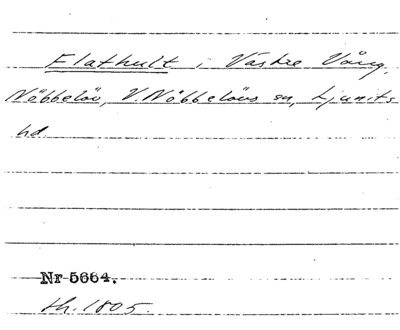 Flathult i Västre Vång,
Nöbbelöv, V. Nöbbelövs sn, Ljunits
hd.
Nr 5664.
sk. 1805.